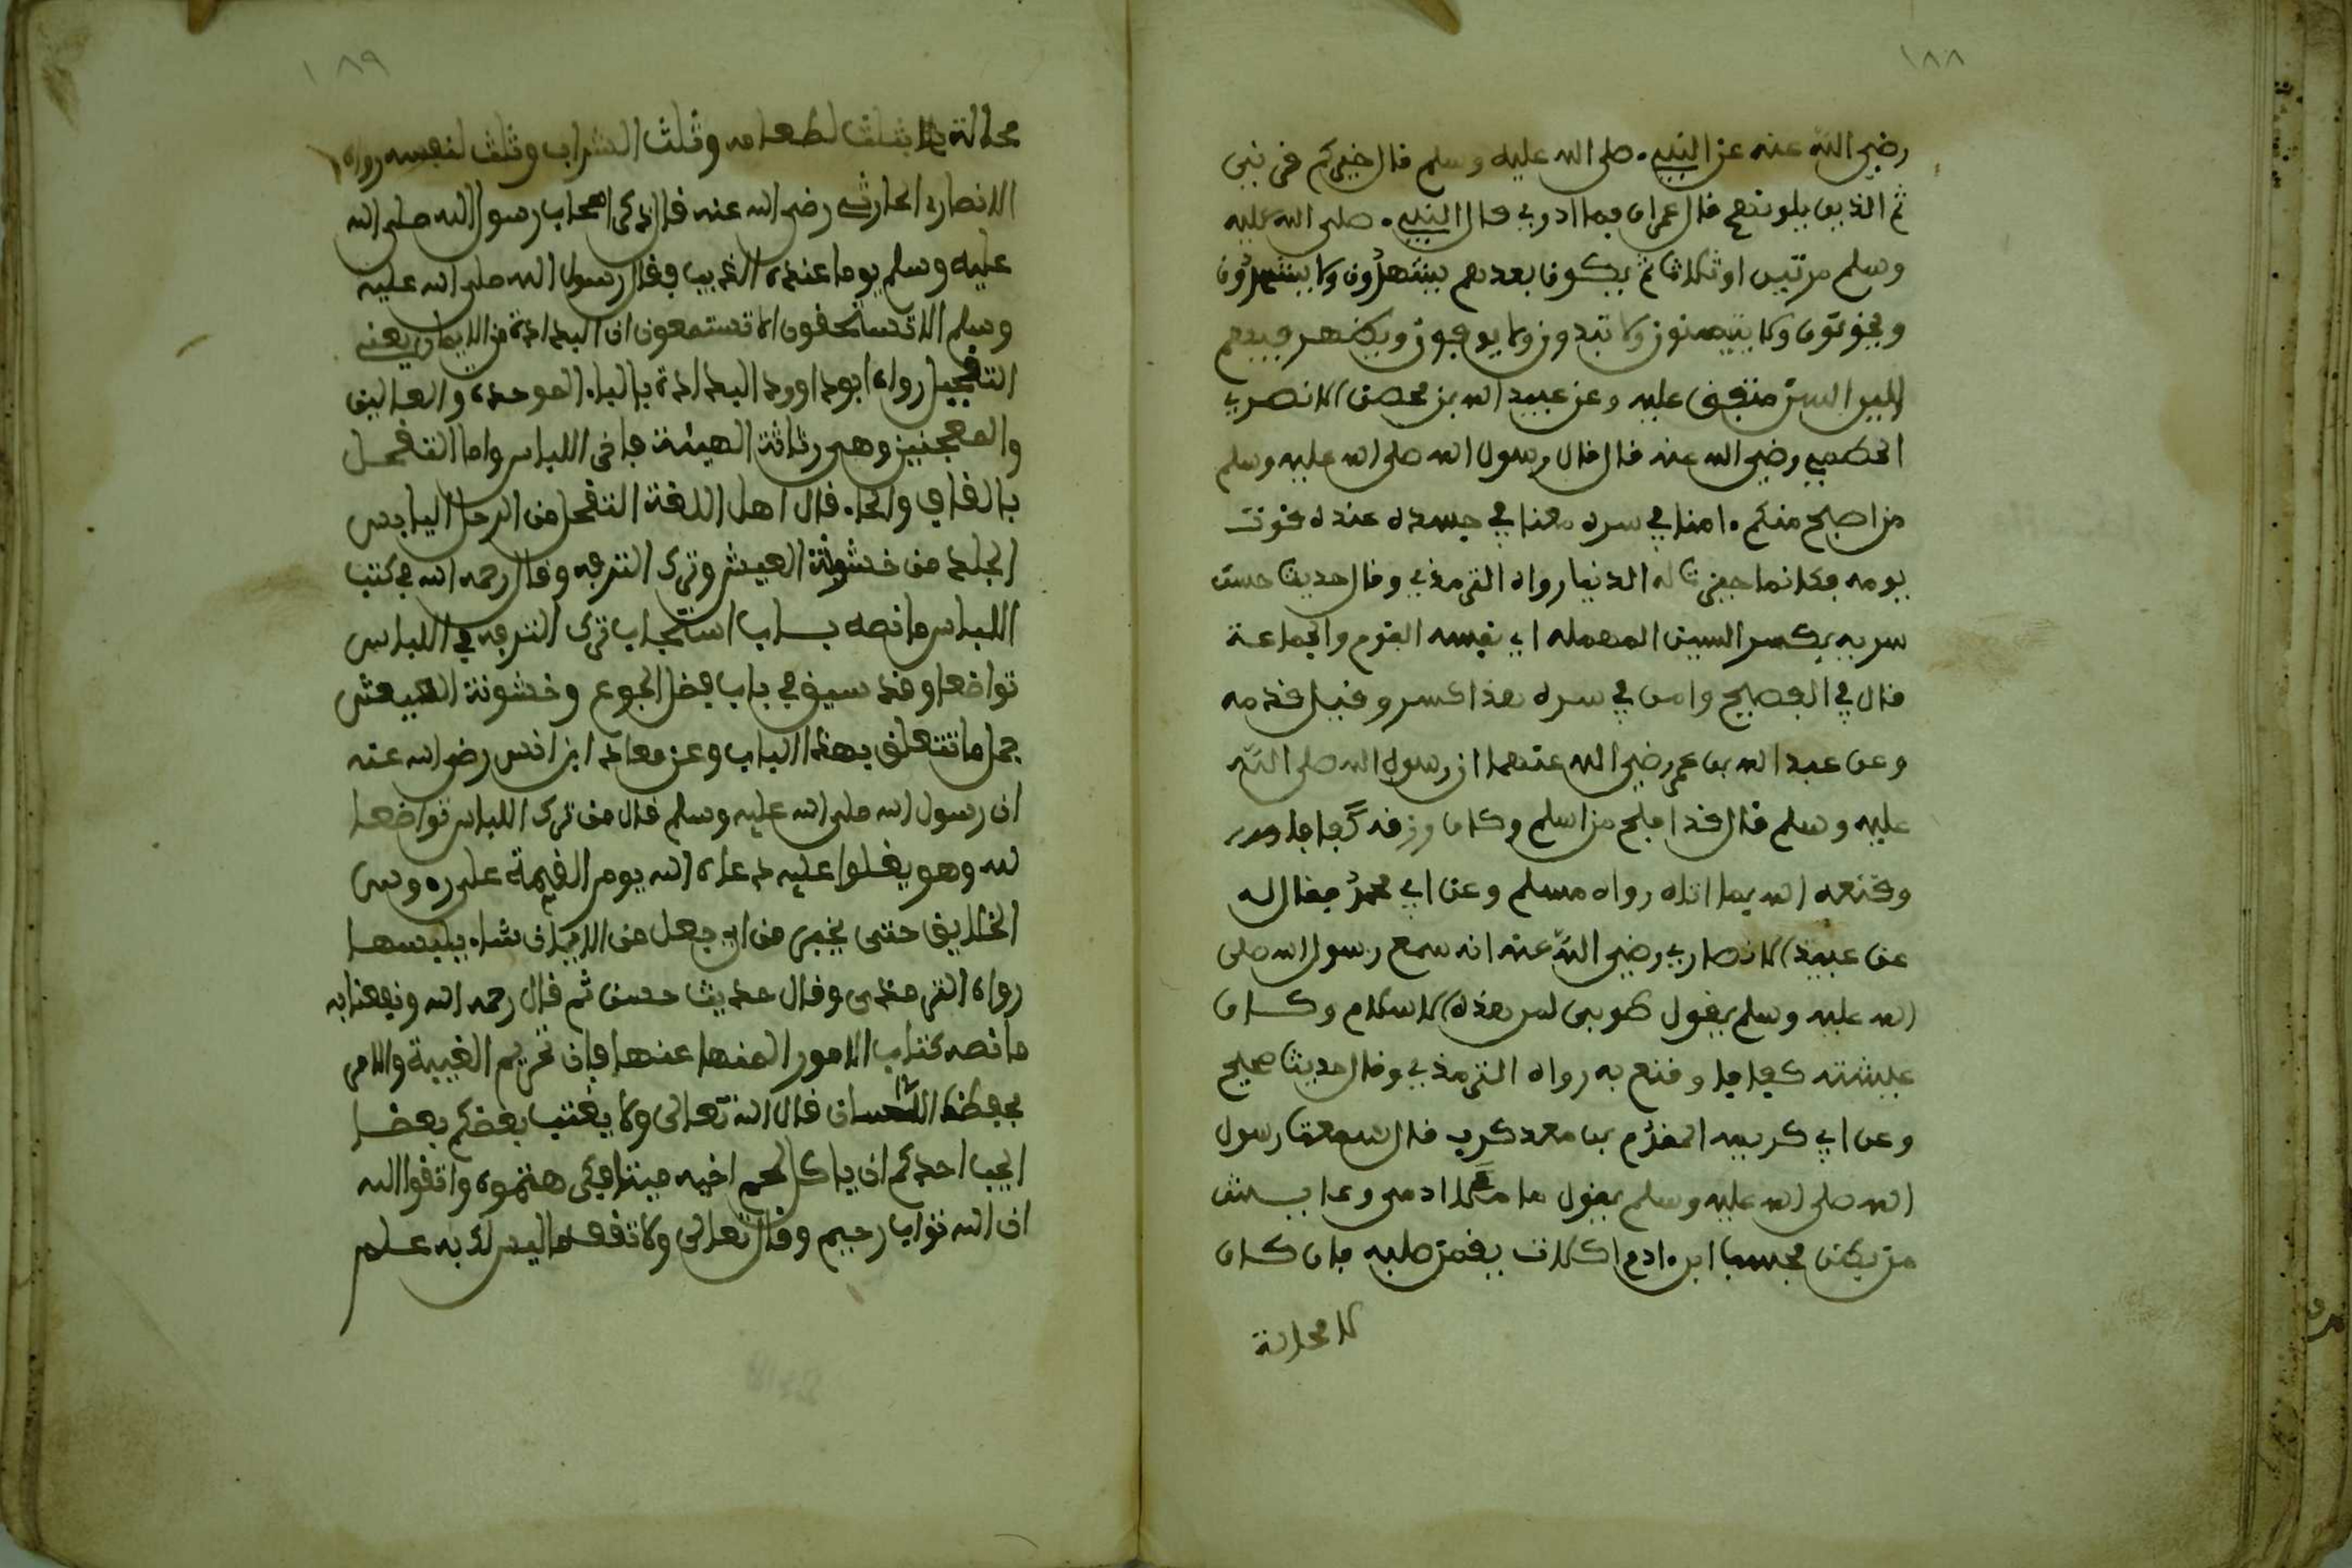 ١٨٨
رضي الله عنه عن النبيء صلى الله عليه وسلم قال خيركم قرني
ثم الذين يلونهم قال عمران فما ادري قال النبيء صلى الله عليه
وسلم مرتين او ثلاثا ثم يكون بعدهم يشهدون ولا يستشهدون
ويخونون ولا يتمنون ولا يوفون ويظهر فيهم
السمن متفق عليه وعن عبيد الله بن محصن الانصري
الخطمي رضي الله عنه قال قال رسول الله صلى الله عليه وسلم
من اصبح منكم ءامنا في سربه معافا في جسده عنده قوت
يومه فكانما حيزت له الدنيا رواه الترمذي وقال حديث حسن
سربه بكسر السين المهمله اي نفسه القوم والجماعة
قال في الفصيح وامن في سربه بهذا كسر وقيل قدمه
وعن عبد الله بن عمر رضي الله عنهما ان رسول الله صلى الله
عليه وسلم قال قد افلح من اسلم وكان رزقه كفافا
وقنعه الله بما اتاه رواه مسلم وعن ابي محمد فضاله
عن عبيد الانصاري رضي الله عنه انه سمع رسول الله صلى
الله عليه وسلم يقول طوبى لمن هذه الاسلام وكان
عيشته كفافا وقنع به رواه الترمذي وقال حديث صحيح
وعن ابي كريمه المقدم بن معد كرب قال سمعت رسول
الله صلى الله عليه وسلم يقول ما ملا ادمي وعا شر
من بطن بحسب ابن ءادم اكلات يقمن صلبه فان كان
لا محالة
١٨٩
محالة فثلث لطعامه وثلث الشراب وثلث لنفسه رواه
الانصاري الحارثي رضي الله عنه قال ذكر اصحاب رسول الله صلى الله
عليه وسلم يوما عنده الدنيا فقال رسول الله صلى الله عليه
وسلم الا تسمعون الا تستمعون ان البذاذة من الايمان يعني
التقحيل رواه ابو داوود البذاذة بالباء الموحده والذالين
والمعجمتين وهي رثاثة الهيئة فاخر اللباس واما التقحل
بالقاف والحاء قال اهل اللغة التقحل من الرجل اليابس
الجلد من خشونة العيش وترك الترفه وقال رحمه الله في كتب
اللباس ما نصه باب استحباب ترك الترفه في اللباس
تواضعا وقد سبق في باب فضل الجوع وخشونة العيش
جمل ما تتعلق بهذا الباب وعن معاذ ابن انس رضي الله عنه
ان رسول الله صلى الله عليه وسلم قال من ترك اللباس تواضعا
لله وهو يقلوا عليه دعاه الله يوم القيمة على رءوس
الخلايق حتى يخيره من اي حلل من الايمان شاء يلبسها
رواه الترمذي وقال حديث حسن ثم قال رحمه الله ونفعنا به
ما نصه كتاب الامور المنها عنها فان تحريم الغيبة والامر
بحفظ اللسان قال الله تعالى ولا يغتب بعضكم بعضا
ايحب احدكم ان ياكل لحم اخيه ميتا فكرهتموه واتقوا الله
ان الله تواب رحيم وقال تعالى ولا تقف ما ليس لك به علم